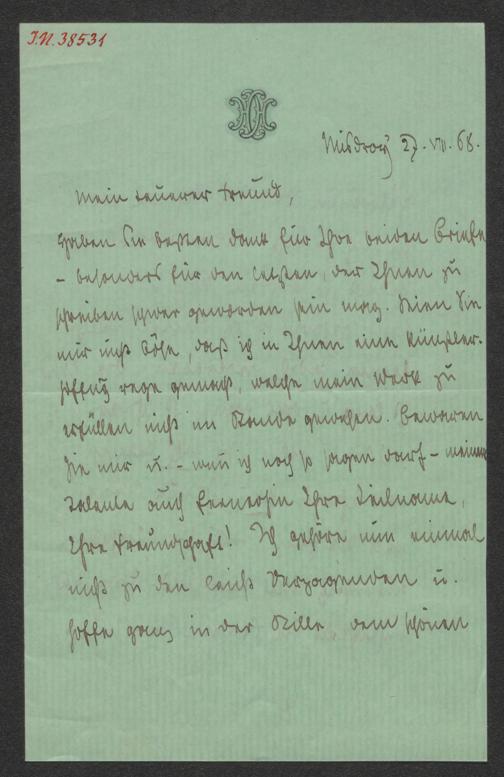 I.N. 38531
Misdroy 27. VII. 68.
Mein teuerer Freund,
Haben Sie besten Dank für Ihre beiden Briefe
– besonders für den letzten, der Ihnen zu
schreiben schwer geworden sein mag. Seien Sie
mir nicht böse, daß ich in Ihnen eine Künstler-
hoffnung rege gemacht, welche mein Werk zu
erfüllen nicht im Stande gewesen. Bewaren
Sie mir u. – wenn ich noch so sagen darf – meinem
Talente auch fernerhin Ihre Teilname,
Ihre Freundschaft! Ich gehöre nun einmal
nicht zu den leicht Verzagenden u.
hoffe ganz in der Stille dem schönen